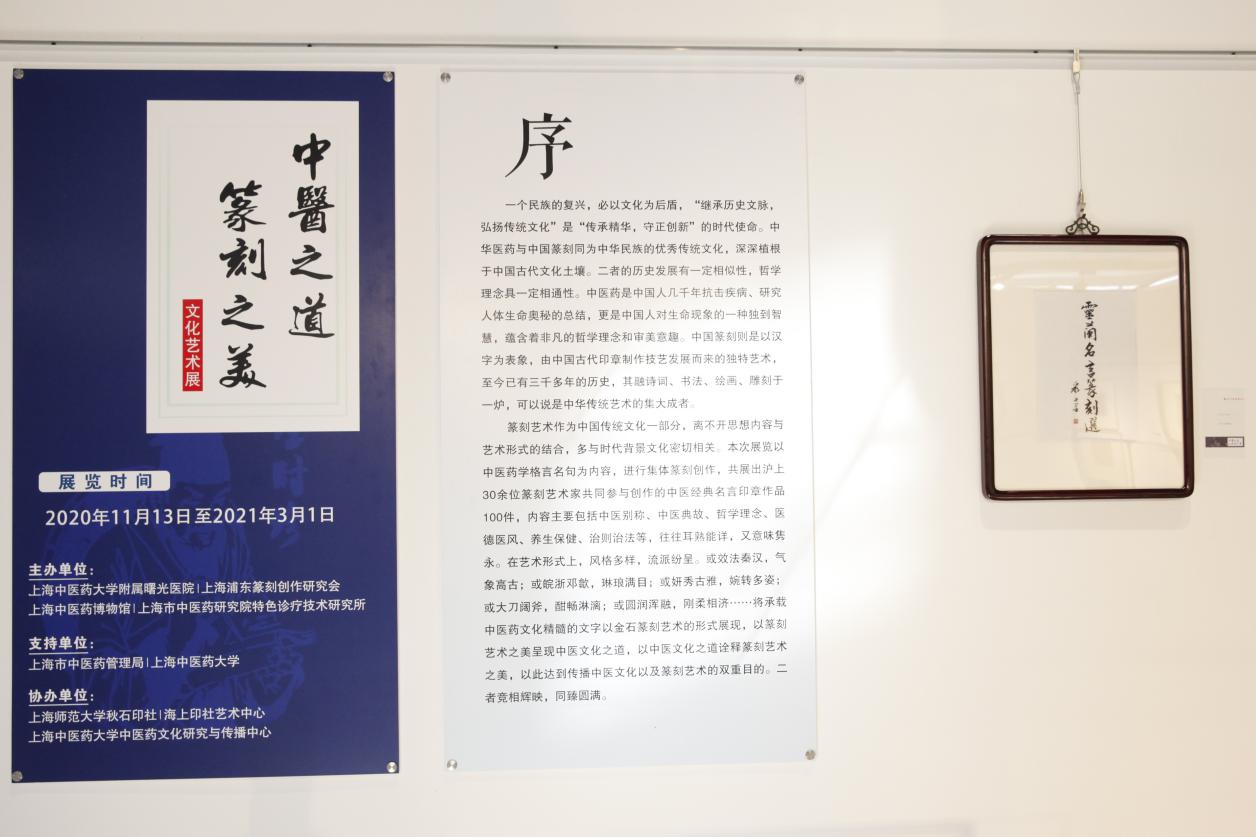 中醫之道
篆刻之美
文化艺术展
展览时间
2020年11月13日至2021年3月1日
主办单位:
上海中医药大学附属曙光医院|上海浦东篆刻创作研究会
上海中医药博物馆|上海市中医药研究院特色诊疗技术研究所
支持单位:
上海市中医药管理局|上海中医药大学
协办单位:
上海师范大学秋石印社|海上印社艺术中心
上海中医药大学中医药文化研究与传播中心
序
一个民族的复兴，必以文化为后盾，“继承历史文脉，
弘扬传统文化”是“传承精华，守正创新”的时代使命。中
华医药与中国篆刻同为中华民族的优秀传统文化，深深植根
于中国古代文化土壤。二者的历史发展有一定相似性，哲学
理念具一定相通性。中医药是中国人几千年抗击疾病、研究
人体生命奥秘的总结，更是中国人对生命现象的一种独到智
慧，蕴含着非凡的哲学理念和审美意趣。中国篆刻则是以汉
字为表象，由中国古代印章制作技艺发展而来的独特艺术，
至今已有三千多年的历史，其融诗词、书法、绘画、雕刻于
一炉，可以说是中华传统艺术的集大成者。
篆刻艺术作为中国传统文化一部分，离不开思想内容与
艺术形式的结合，多与时代背景文化密切相关。本次展览以
中医药学格言名句为内容，进行集体篆刻创作，共展出沪上
30余位篆刻艺术家共同参与创作的中医经典名言印章作品
100件，内容主要包括中医别称、中医典故、哲学理念、医
德医风、养生保健、治则治法等，往往耳熟能详，又意味隽
永。在艺术形式上，风格多样，流派纷呈。或效法秦汉，气
象高古；或皖浙邓歙，琳琅满目；或妍秀古雅，婉转多姿；
或大刀阔斧，酣畅淋漓；或圆润浑融，刚柔相济……将承载
中医药文化精髓的文字以金石篆刻艺术的形式展现，以篆刻
艺术之美呈现中医文化之道，以中医文化之道诠释篆刻艺术
之美，以此达到传播中医文化以及篆刻艺术的双重目的。二
者竞相辉映，同臻圆满。
靈蘭名言篆刻選